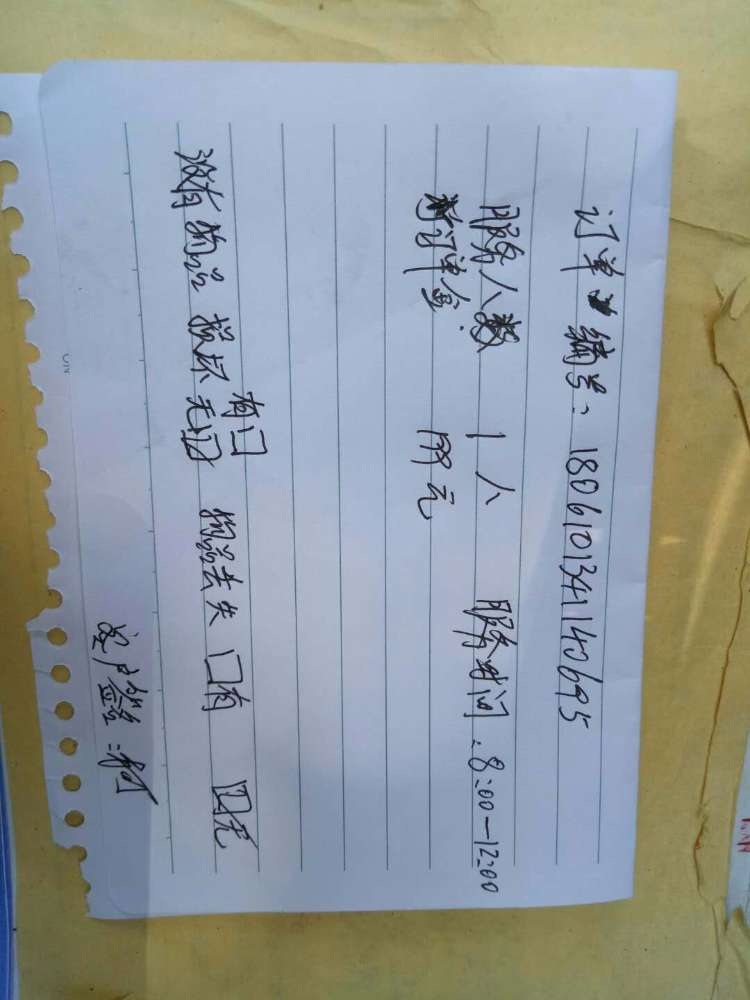 订单编号: 1806101341140695
服务人数 1人 服务时间: 8:00—12:00
订单金: 元
有口
没有物品 损坏 无☑ 物品丢失 口有 ☑无
客户签名: